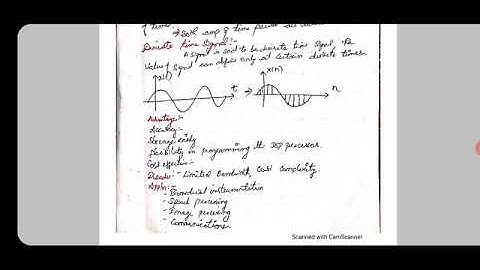 of time.
⇒ Both amp & time
Discrete time Signal :-
A signal is said to be discrete time signal, The
Value of signal can define only at certain discrete times.
x(t) x(n)
t ⇒ n
Advantage :-
Accuracy :-
Storage easily
flexibility in programming the DSP processor
Cost effective -
Disadv :- Limited Bandwidth, Cost Complexity.
Appln :-
- Biomedical instrumentation
- Speech processing
- Image processing
- Communications
Scanned with CamScanner